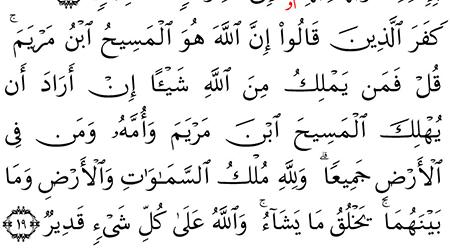 أو
كَفَرَ ٱلَّذِينَ قَالُوا۟ إِنَّ ٱللَّهَ هُوَ ٱلْمَسِيحُ ٱبْنُ مَرْيَمَ ۚ
قُلْ فَمَن يَمْلِكُ مِنَ ٱللَّهِ شَيْـًٔا إِنْ أَرَادَ أَن
يُهْلِكَ ٱلْمَسِيحَ ٱبْنَ مَرْيَمَ وَأُمَّهُۥ وَمَن فِى
ٱلْأَرْضِ جَمِيعًا ۗ وَلِلَّهِ مُلْكُ ٱلسَّمَٰوَٰتِ وَٱلْأَرْضِ وَمَا
بَيْنَهُمَا ۚ يَخْلُقُ مَا يَشَآءُ ۚ وَٱللَّهُ عَلَىٰ كُلِّ شَىْءٍ قَدِيرٌ ١٩